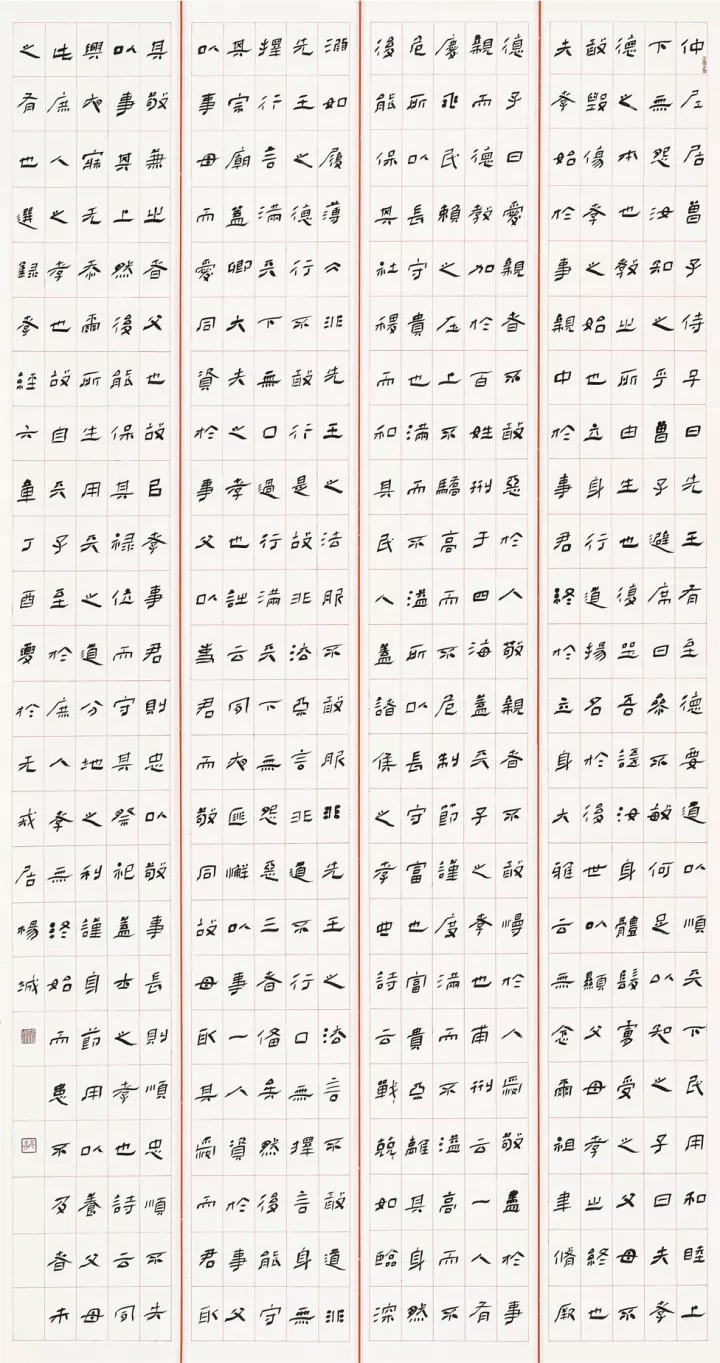 仲尼居曾子侍子曰先王有至德要道以順天下民用和睦上
下無怨汝知之乎曾子避席曰參不敏何足以知之子曰夫孝
德之本也教之所由生也復坐吾語汝身體髮膚受之父母不
敢毀傷孝之始也立身行道揚名於後世以顯父母孝之終也
夫孝始於事親中於事君終於立身大雅云無念爾祖聿脩厥
德子曰愛親者不敢惡於人敬親者不敢慢於人愛敬盡於事
親而德教加於百姓刑于四海蓋天子之孝也甫刑云一人有
慶兆民賴之在上不驕高而不危制節謹度滿而不溢高而不
危所以長守貴也滿而不溢所以長守富也富貴不離其身然
後能保其社稷而和其民人蓋諸侯之孝也詩云戰〻兢〻如臨深
淵如履薄冰非先王之法服不敢服非先王之法言不敢道非
先王之德行不敢行是故非法不言非道不行口無擇言身無
擇行言滿天下無口過行滿天下無怨惡三者備矣然後能守
其宗廟蓋卿大夫之孝也詩云夙夜匪懈以事一人資於事父
以事母而愛同資於事父以事君而敬同故母取其愛而君取
其敬兼之者父也故以孝事君則忠以敬事長則順忠順不失
以事其上然後能保其祿位而守其祭祀蓋士之孝也詩云夙
興夜寐无忝爾所生用天之道分地之利謹身節用以養父母
此庶人之孝也故自天子至於庶人孝無終始而患不及者未
之有也選錄孝經六章丁酉夏於无戒居楊城